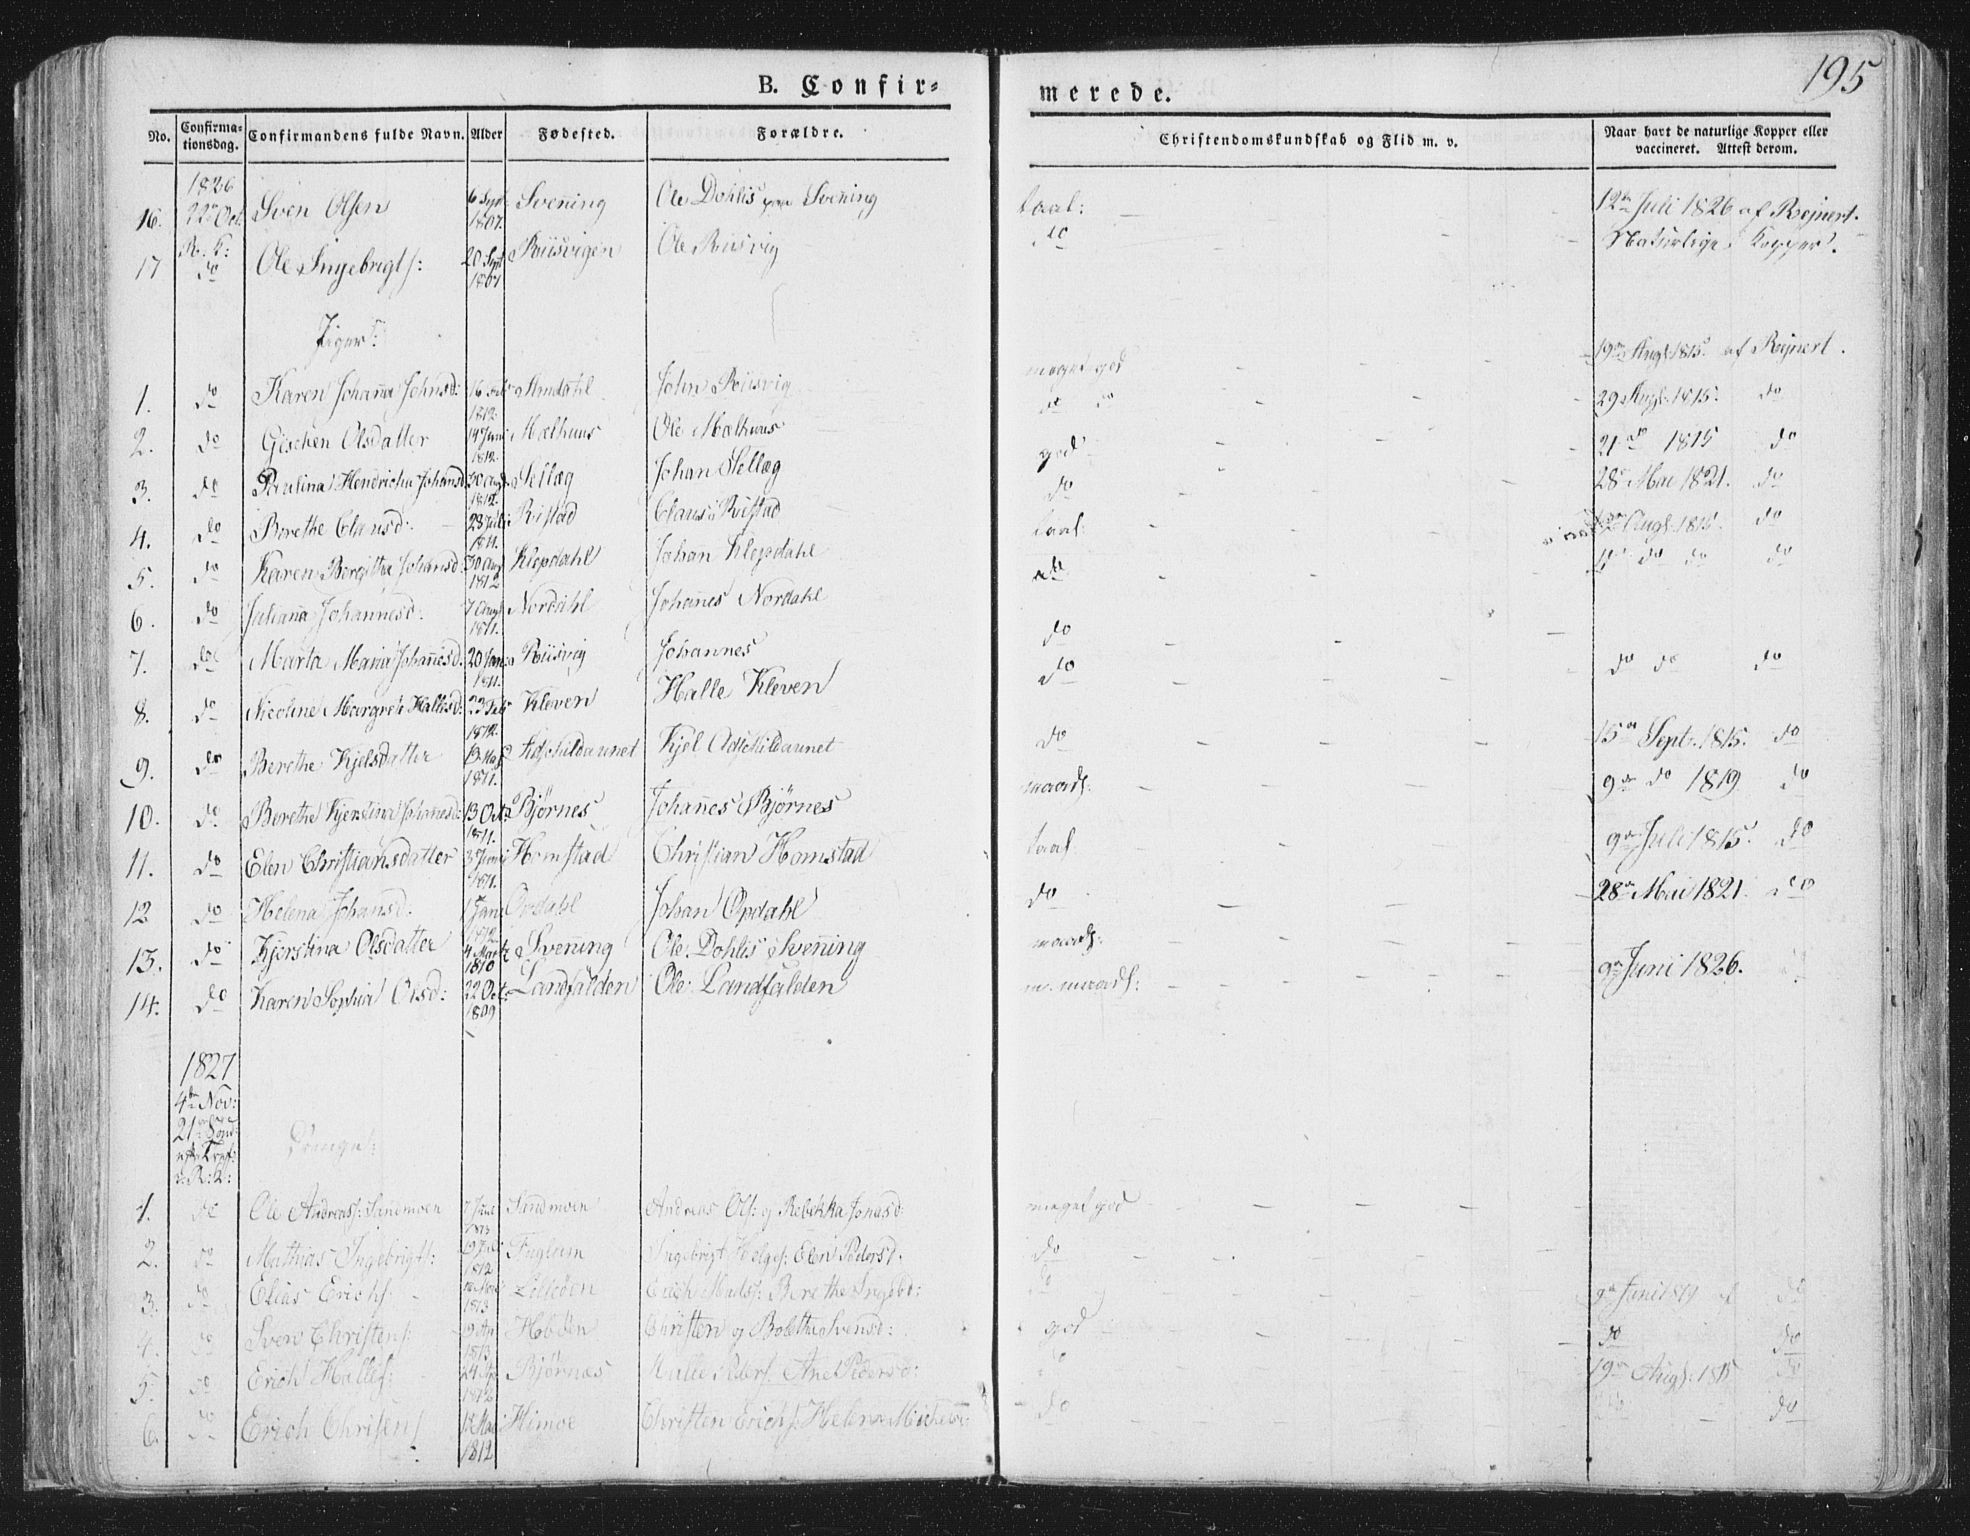 195
B. Confir-
merede.
No. Confirma-tionsdag. Confirmandens fulde Navn. Alder Fødested. Forældre. Christendomskundskab og Flid m. v. Naar havt de naturlige Kopper eller vaccineret. Attest derom.
1826
16. 22 Oct. Sven Olsen 6 Sept 1807. Svening Ole Dohlis Svening taal: 12te Juli 1826 af Rejnert.
17 do Ole Ingebrigts: 20 Sept 1807 Riisvigen Ole Riisvig do Naturlige Kopper.
Piger:
19de Augs 1815. af Rejnert.
1. do Karen Johana Johnsd: 16 1812. Amdahl John Riisvig meget god
29 Augs. 1815. do
2. do Gischen Olsdatter 14 Juni 1812. Mælhuus Ole Mælhuus do do
21 do 1815 do
3. do Paulina Hendricha Johansd. 30 Aug. 1812. Sellæg Johan Sellæg god
28 Mai 1821. do
4. do Berethe Clausd: 23 Juli 1811. Ristad Claus Ristad do
Augs. 1815. do
5. do Karen Beregitha Johansd. 30 Aug 1812 Klepdahl Johan Klepdahl taal:
do do do
6. do Juliana Johannesd. 7 1811. Nordahl Johanes Nordahl do
7. do Marta Maria Johanesd. 20 Jan: 1811. Riisvig Johannes do
do do do
8. do Nicoline Margrete Hallesd: 22 Feb 1812. Kleven Halle Kleven do
9. do Berethe Kjelsdatter 1811. Adschildaunet Kjel Adschildaunet do
15de Sept. 1815. do
10. do Berethe Kjerstina Johanesd: 13 Oct: 1811. Bjørnes Johanes Bjørnes maads:
9de do 1819 do
11. do Elen Christiansdatter 3 Juni 1811. Homstad Christian Homstad taal
9de Juli 1815. do
12 do Helena Johansd. 1 Jan Opdahl Johan Opdahl do
28de Mai 1821. do
13. do Kjerstina Olsdatter 4 1810 Svening Ole Dohlis Svening maads:
14. do Karen Sophia Olsd: 22 Oct: 1809 Landfalden Ole Landfalden m. maads:
9de Juni 1826.
1827
4de Nov:
21de Sønd:
Drenge:
1. do Ole Andreas: Sandmoen 7 1813 Sandmoen Andreas Ols: og Rebekka Jonasd: meget god
2. do Mathias Ingebrigts: 19 1812 Fugleim Ingebrigt Helges: Elen Pedersd. do
3. do Elias Erichs: 1813 Lilleøen Erich Mads: Berethe Ingebd: do 9de Juni 1819 af do
4. do Sven Christens: 1813 Hobøen Christen og Bolethe Svensd: god do do
5. do Erich Halles: 24 1812 Bjørnes Halle Peders. Ane Pedersd: do 19de Augs. 1815 do
6. do Erich Chrisens 1812 Himoe Christen Erichs. Helena do do